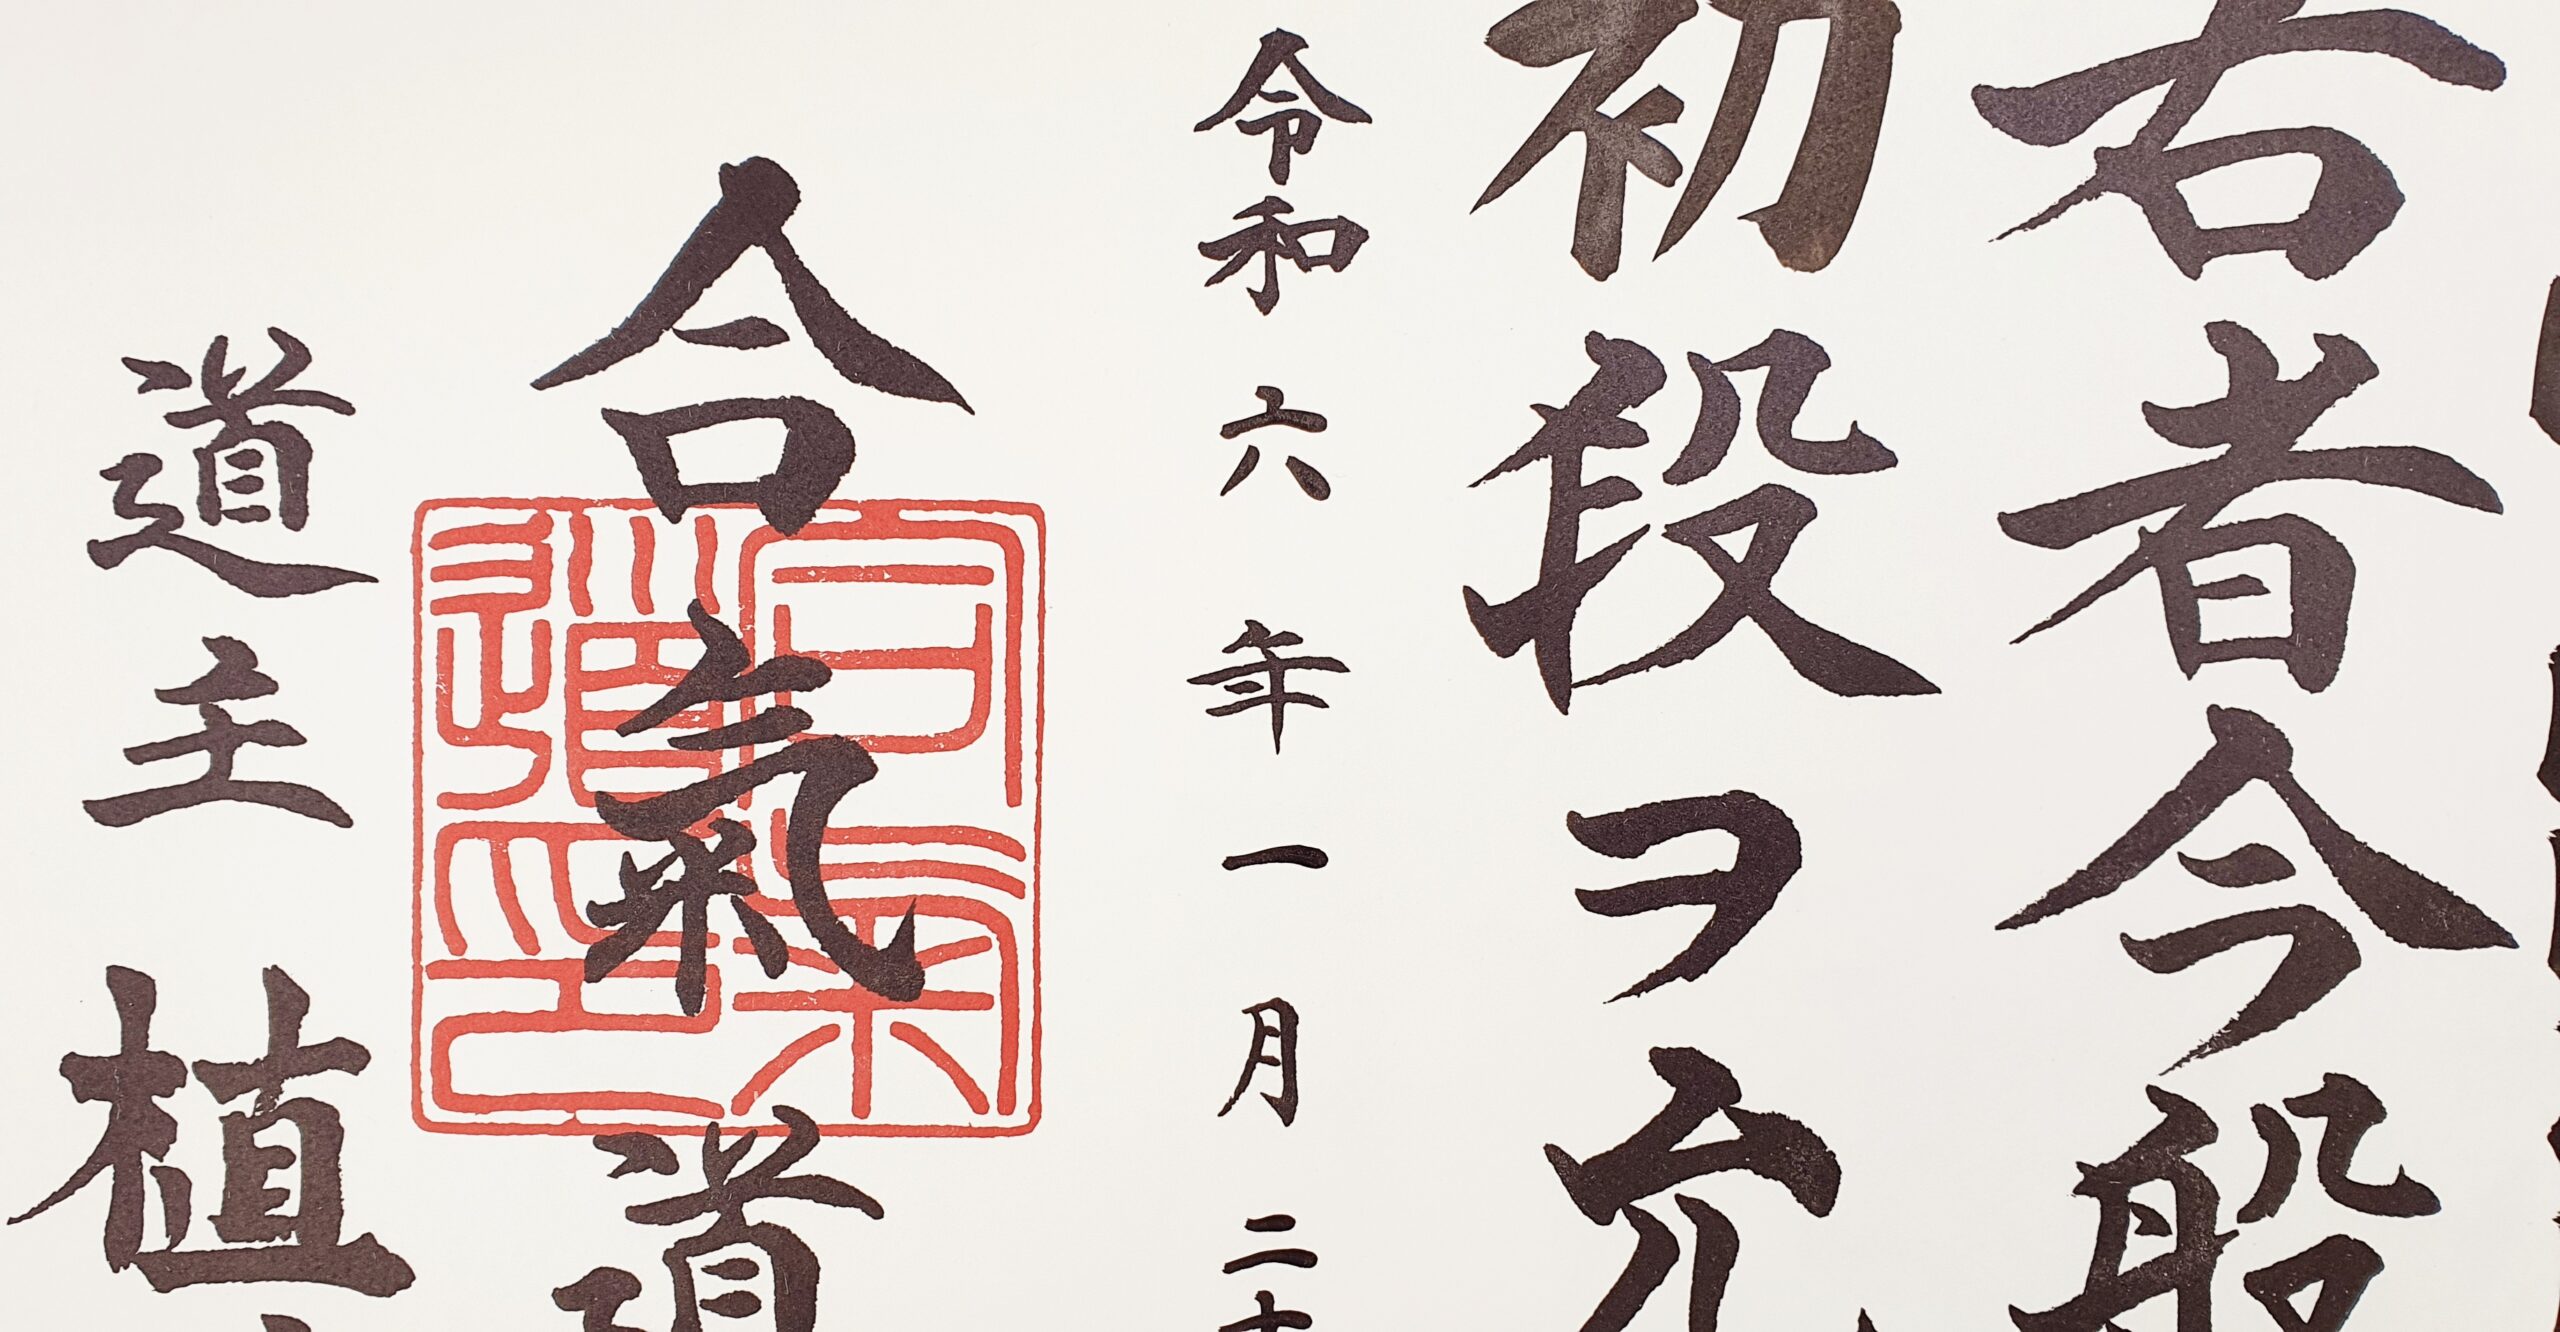 右者今般
初段ヲ允
令和六年一月二十
合氣道
道主植